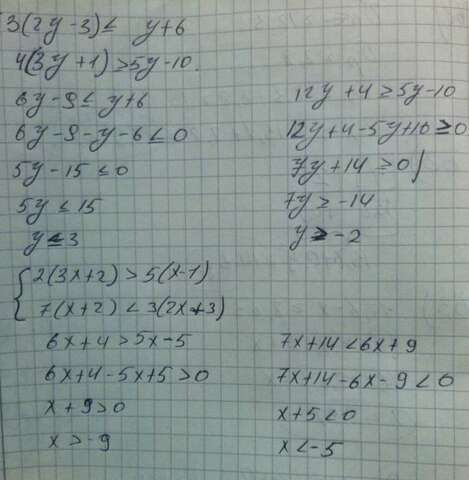 3(2y-3) ≤ y+6
4(3y+1) > 5y-10.
6y-9 ≤ y+6
6y-9-y-6 ≤ 0
5y-15 ≤ 0
5y ≤ 15
y ≤ 3
12y+4 ≥ 5y-10
12y+4-5y+10 ≥ 0
7y+14 ≥ 0)
7y > -14
y > -2
{ 2(3x+2) > 5(x-1)
7(x+2) < 3(2x+3)
6x+4 > 5x-5
6x+4-5x+5 > 0
x+9 > 0
x > -9
7x+14 < 6x+9
7x+14-6x-9 < 0
x+5 < 0
x < -5